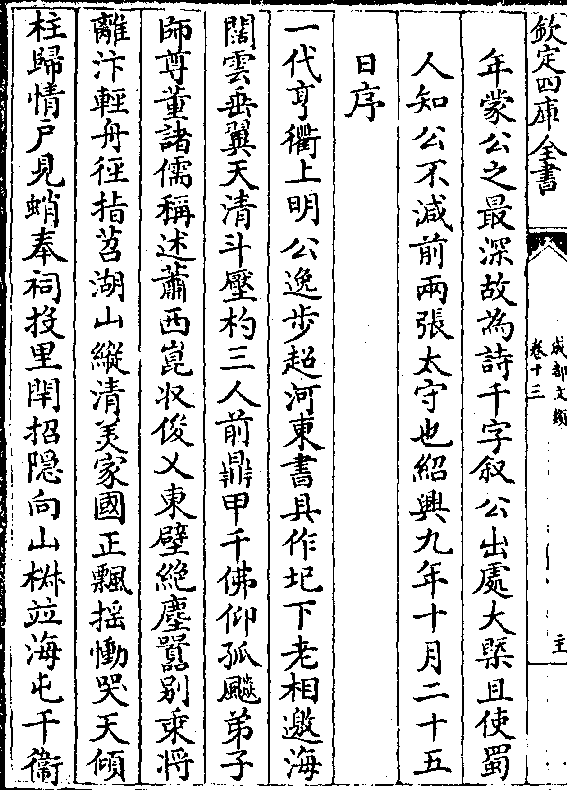 欽定四庫全書
成都文類
卷十三
年蒙公之最深故為詩千字叙公出處大槩且使蜀
人知公不減前兩張太守也紹興九年十月二十五
日序
一代亨衢上明公逸步超河東書具作圯下老相邀海
闊雲垂翼天清斗壓杓三人前鼎甲千佛仰孤飈弟子
師尊董諸儒稱述蕭西崑収俊乂東壁絶塵囂别乗将
離汴輕舟徑指苕湖山縱清美家國正飄揺慟哭天傾
柱歸情戸見蛸奉祠投里閈招隠向山椒竝海屯千衞